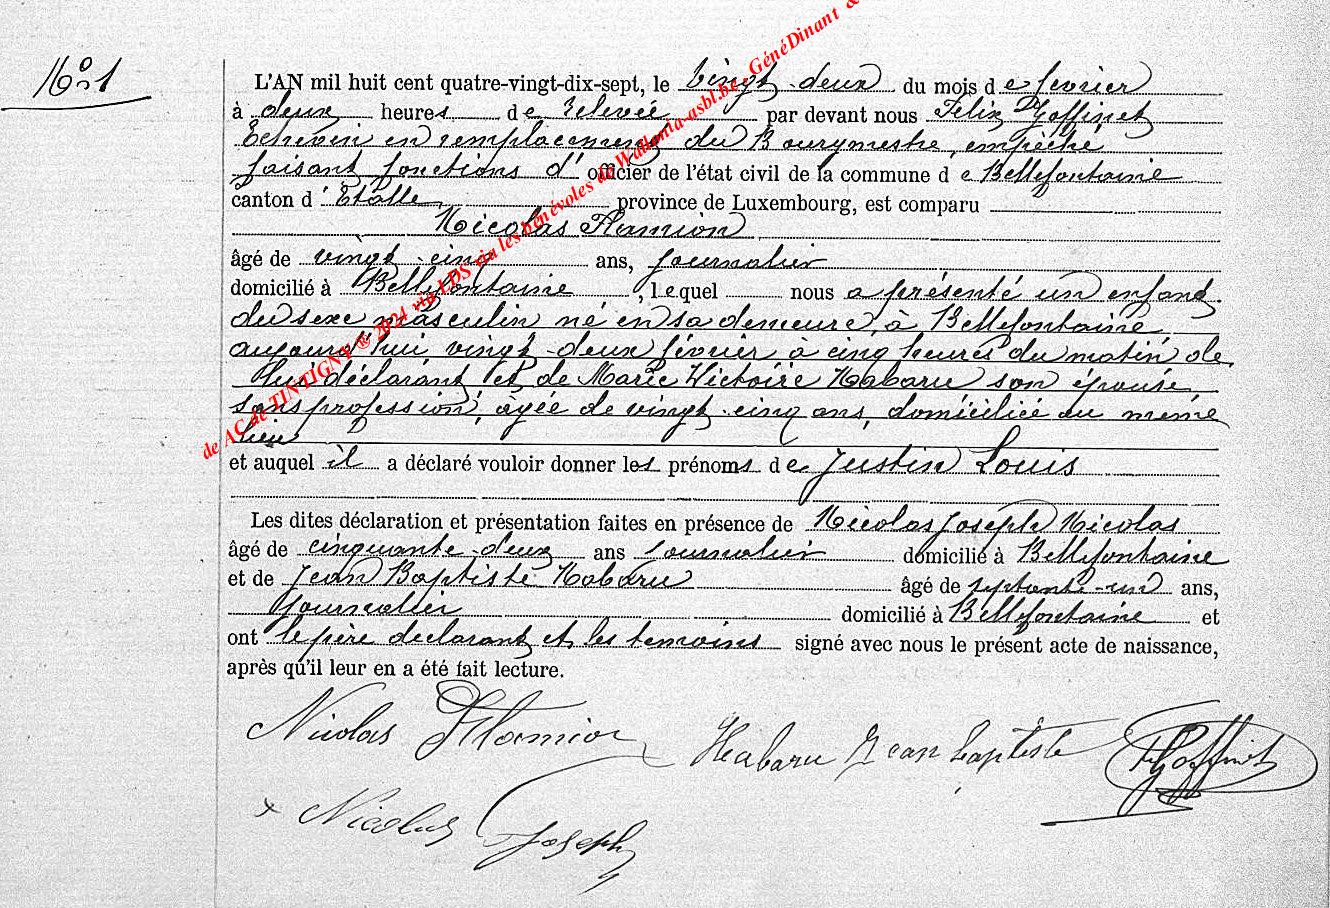 No 1
L'AN mil huit cent quatre-vingt-dix-sept, le vingt-deux du mois de février
à deux heures de relevée par devant nous Félix Goffinet
Echevin en remplacement du Bourgmestre, empêché
faisant fonctions d' officier de l'état civil de la commune de Bellefontaine
canton d' Etalle, province de Luxembourg, est comparu
Nicolas Flamion
âgé de vingt-cinq ans, journalier
domicilié à Bellefontaine, lequel nous a présenté un enfant
du sexe masculin né en sa demeure, à Bellefontaine
aujourd'hui, vingt-deux février à cinq heures du matin de
lui déclarant et de Marie Victoire Habaru son épouse
sans profession, âgée de vingt-cinq ans, domiciliée au même
lieu
et auquel il a déclaré vouloir donner les prénoms de Justin Louis
Les dites déclaration et présentation faites en présence de Nicolas Joseph Nicolas
âgé de cinquante-deux ans journalier domicilié à Bellefontaine
et de Jean Baptiste Habaru âgé de septante-un ans,
journalier domicilié à Bellefontaine et
ont le père déclarant et les témoins signé avec nous le présent acte de naissance,
après qu'il leur en a été fait lecture.
Nicolas Flamion Habaru Jean baptiste F Goffinet
x Nicolas Joseph
de AC de TINTIGNY ® 2024 via LDS via les bénévoles de Wallonia-asbl.be - GénéDinant &